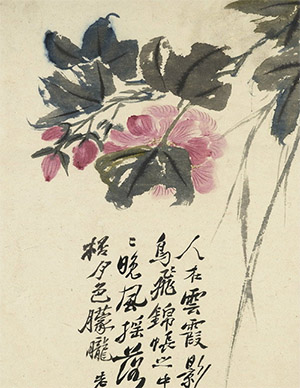 人在雲霞影
鳥飛錦帳之中
晚風搖落
夕色朦朧